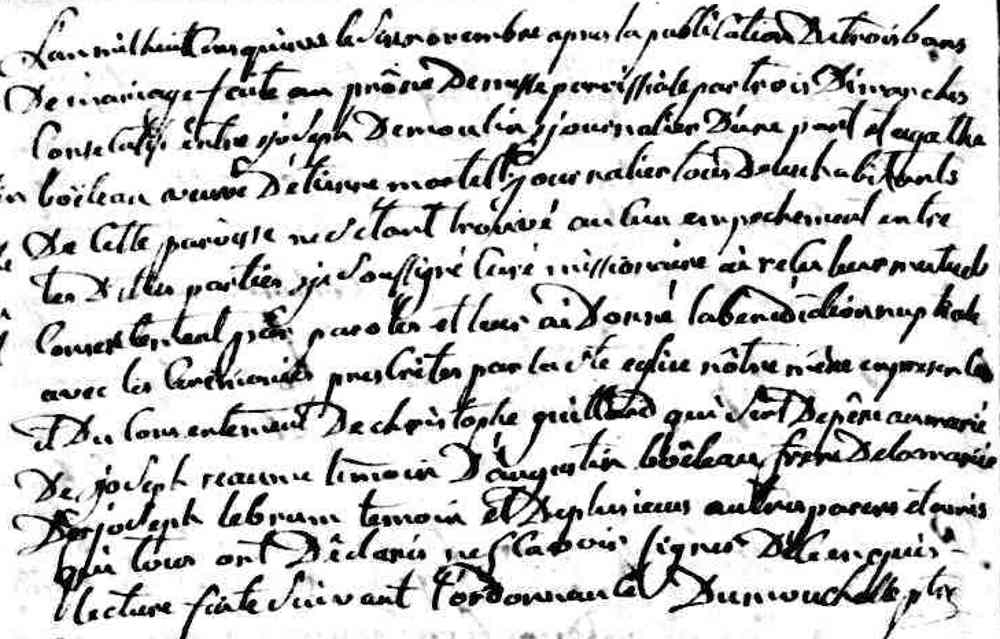 L'an mil huit cens quinze le six novembre apres la publication de trois bans
De mariage faite au prône de messe parroissiale par trois Dimanches
Consecutifs entre joseph Demoulin journalier D'une part et agathe
boileau veuve D'étienne martell journalier tous Deux habitants
De cette paroisse ne s'etant trouvé aucun empechement entre
les Dites parties je soussigné Curé missionnaire ai reçu leur mutuel
Consentement par paroles et leur ai Donné la bénédiction nuptiale
avec les Cérémonies prescrites par la ste eglise nôtre mère en presence
et Du consentement De christophe guillard qui sert De père au marié
De joseph reaume temoin D'augustin boileau frere De la mariée
De joseph lebrum temoin et De plusieurs autres parens et amis
qui tous ont Déclaré ne sçavoir signer De ce enquis
lecture faite suivant l'ordonnance Dumouchelle ptre